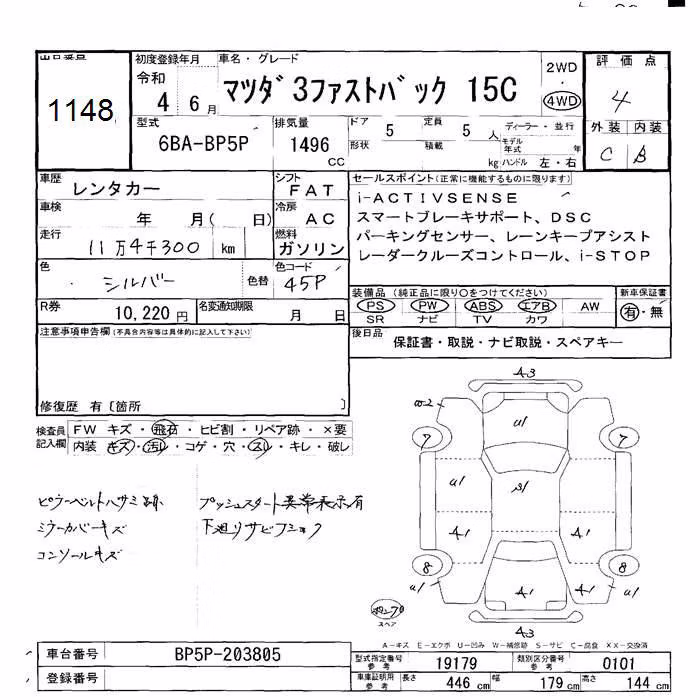 1148
初度登録年月 車名・グレード
令和 4 年 6 月 マツダ3ファストバック 15C 2WD 4WD
評価点 4
外装 内装
C B
型式 6BA-BP5P
排気量 1496 CC
ドア 5 定員 5 人 ディーラー・並行
形状 積載 kg モデル年式 年 ハンドル 左・右
車歴 レンタカー
シフト FAT
車検 年 月( 日)
冷房 AC
走行 11万4千300 km
燃料 ガソリン
色 シルバー 色替
色コード 45P
R券 10,220 円 名変通知期限 月 日
セールスポイント(正常に機能するものに限ります)
i-ACTIVSENSE
スマートブレーキサポート、DSC
パーキングセンサー、レーンキープアシスト
レーダークルーズコントロール、i-STOP
装備品(純正品に限り○をつけてください) 新車保証書
PS PW ABS エアB AW 有・無
SR ナビ TV カワ
後日品 保証書・取説・ナビ取説・スペアキー
注意事項申告欄(不具合内容等は具体的に記入して下さい)
修復歴 有〔箇所 〕
検査員記入欄 FW キズ・飛石・ヒビ割・リペア跡・×要
内装 キズ・汚れ・コゲ・穴・スレ・キレ・破れ
ピラーベルトハサミ跡 プッシュスタート異常表示有
ミラーカバーキズ 下廻りサビコショク
コンソールキズ
A3
7 7
8 8
A3
スペア
A-キズ E-エクボ U-凹み W-補修跡 S-サビ C-腐食 XX-交換済
車台番号 BP5P-203805
登録番号
型式指定番号 参考 19179 類別区分番号 参考 0101
車庫証明用 参考 長さ 446 cm 幅 179 cm 高さ 144 cm